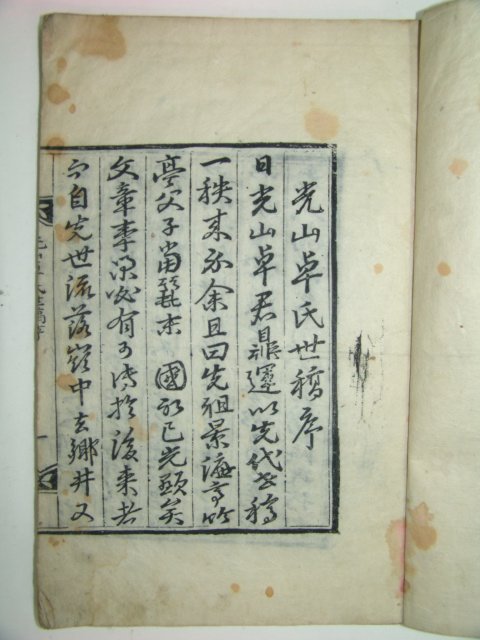 光山卓氏世稿序
日光山卓君鼎運以先代世稿
一秩来示余且曰先祖景濂亭竹
亭父子當麗末 國初已光顯矣
文章事業必有可傳於後来者
而自先世流落嶺中去鄕井又
光山卓氏世稿序
一